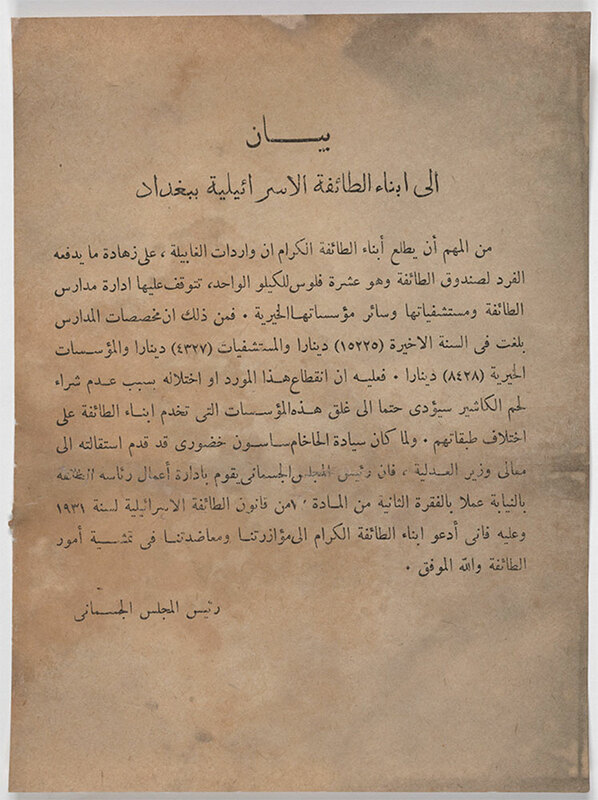 بيـــــان
الى ابناء الطائفة الاسرائيلية ببغداد
من المهم أن يطلع أبناء الطائفة الكرام ان واردات الغابيلة ، على زهادة ما يدفعه
الفرد لصندوق الطائفة وهو عشرة فلوس للكيلو الواحد، تتوقف عليها ادارة مدارس
الطائفة ومستشفياتها وسائر مؤسساتها الخيرية ٠ فمن ذلك ان مخصصات المدارس
بلغت فى السنة الاخيرة (١٥٢٢٥) دينارا والمستشفيات (٤٣٢٧) دينارا والمؤسسات
الخيرية (٨٤٢٨) دينارا ٠ فعليه ان انقطاع هذا المورد او اختلاله بسبب عدم شراء
لحم الكاشير سيؤدى حتما الى غلق هذه المؤسسات التى تخدم ابناء الطائفة على
اختلاف طبقاتهم ٠ ولما كان سيادة الحاخام ساسون خضورى قد قدم استقالته الى
معالى وزير العدلية ، فان رئيس المجلس الجسمانى يقوم بادارة أعمال رئاسه
بالنيابة عملا بالفقرة الثانية من المادة من قانون الطائفة الاسرائيلية لسنة ١٩٣١
وعليه فانى أدعو ابناء الطائفة الكرام الى مؤازرتنا ومعاضدتنا فى تمشـية أمور
الطائفة والله الموفق ٠
رئيس المجلس الجسمانى